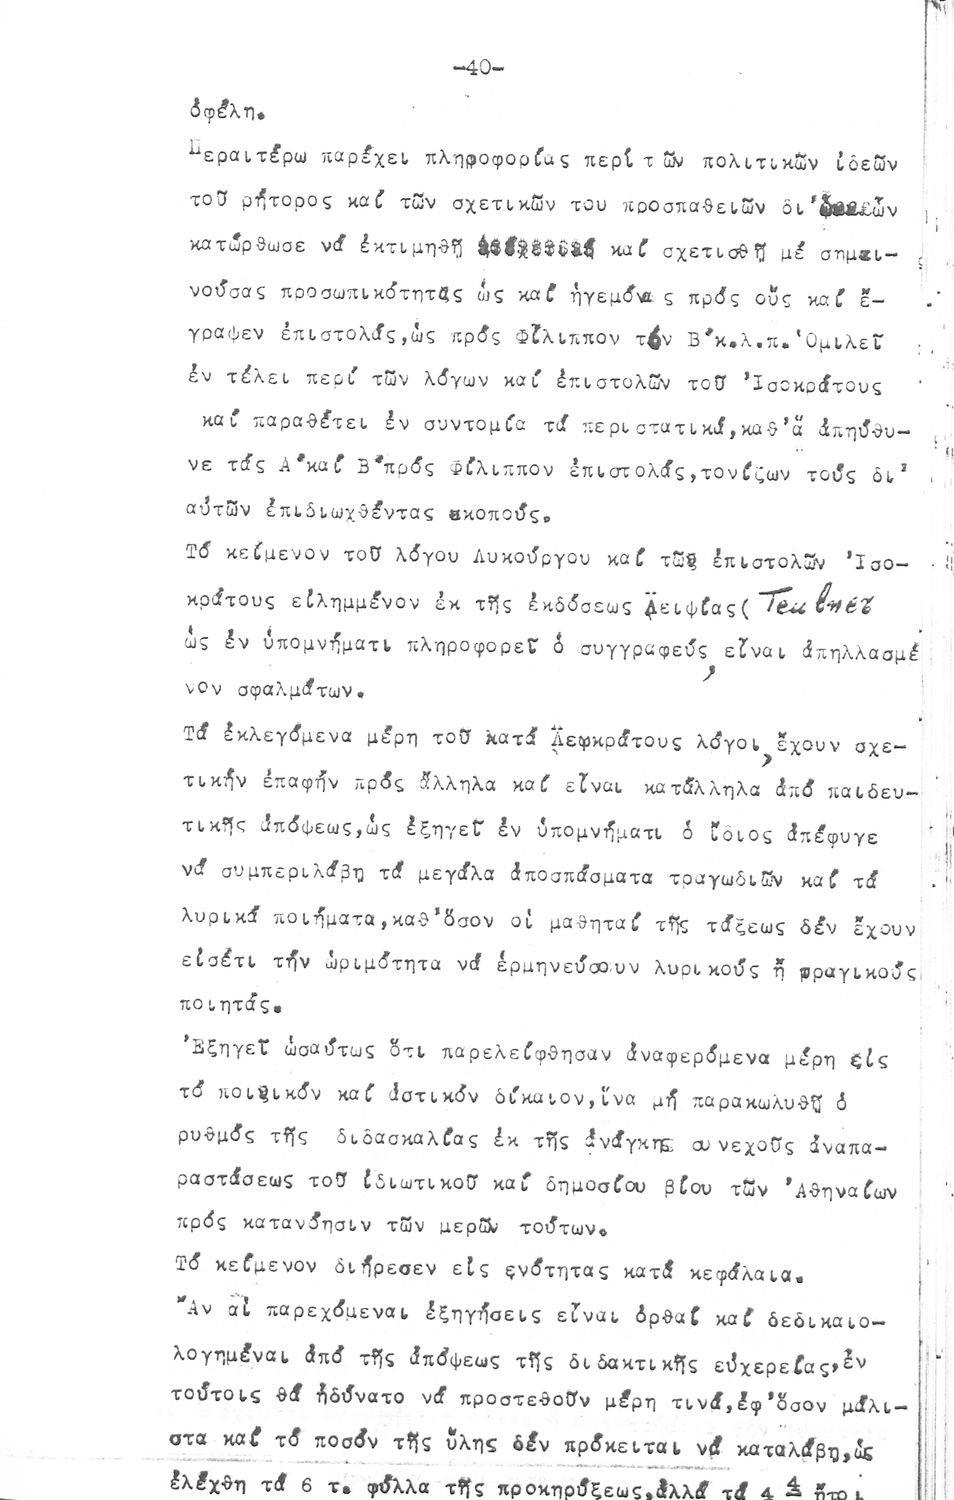 -40-
ὀφέλη.
Περαιτέρω παρέχει πληροφορίας περί τῶν πολιτικῶν ἰδεῶν
τοῦ ρήτορος καί τῶν σχετικῶν του προσπαθειῶν δι' ὧν
κατώρθωσε νά ἐκτιμηθῇ καί σχετισθῇ μέ σημαι-
νούσας προσωπικότητας ὡς καί ἡγεμόνας πρός οὕς καί ἔ-
γραψεν ἐπιστολάς,ὡς πρός Φίλιππον τόν Β΄κ.λ.π. Ὁμιλεῖ
ἐν τέλει περί τῶν λόγων καί ἐπιστολῶν τοῦ Ἰσοκράτους
καί παραθέτει ἐν συντομία τά περιστατικά,καθ'ἅ ἀπηύθυ-
νε τάς Α΄καί Β΄πρός Φίλιππον ἐπιστολάς,τονίζων τούς δι'
αὐτῶν ἐπιδιωχθέντας σκοπούς.
Τό κείμενον τοῦ λόγου Λυκούργου καί τῶν ἐπιστολῶν Ἰσο-
κράτους εἰλημμένον ἐκ τῆς ἐκδόσεως Λειψίας( Teubner
ὡς ἐν ὑπομνήματι πληροφορεῖ ὁ συγγραφεύς, εἶναι ἀπηλλασμέ
νον σφαλμάτων.
Τά ἐκλεγόμενα μέρη τοῦ κατά Λεωκράτους λόγοι, ἔχουν σχε-
τικήν ἐπαφήν πρός ἄλληλα καί εἶναι κατάλληλα ἀπό παιδευ-
τικῆς ἀπόψεως,ὡς ἐξηγεῖ ἐν ὑπομνήματι ὁ ἴδιος ἀπέφυγε
νά συμπεριλάβῃ τά μεγάλα ἀποσπάσματα τραγωδιῶν καί τά
λυρικά ποιήματα,καθ'ὅσον οἱ μαθηταί τῆς τάξεως δέν ἔχουν
εἰσέτι τήν ὡριμότητα νά ἑρμηνεύσουν λυρικούς ἤ τραγικούς
ποιητάς.
Ἐξηγεῖ ὡσαύτως ὅτι παρελείφθησαν ἀναφερόμενα μέρη εἰς
τό ποινικόν καί ἀστικόν δίκαιον,ἵνα μή παρακωλυθῇ ὁ
ρυθμός τῆς διδασκαλίας ἐκ τῆς ἀνάγκης συνεχοῦς ἀναπα-
ραστάσεως τοῦ ἰδιωτικοῦ καί δημοσίου βίου τῶν Ἀθηναίων
πρός κατανόησιν τῶν μερῶν τούτων.
Τό κείμενον διήρεσεν εἰς ἑνότητας κατά κεφάλαια.
Ἄν αἱ παρεχόμεναι ἐξηγήσεις εἶναι ὀρθαί καί δεδικαιο-
λογημέναι ἀπό τῆς ἀπόψεως τῆς διδακτικῆς εὐχερείας,ἐν
τούτοις θά ἠδύνατο νά προστεθοῦν μέρη τινά,ἐφ'ὅσον μάλι-
στα καί τό ποσόν τῆς ὕλης δέν πρόκειται νά καταλάβῃ,ὡς
ἐλέχθη τά 6 τ. φύλλα τῆς προκηρύξεως,ἀλλά τά 4 ἤτοι